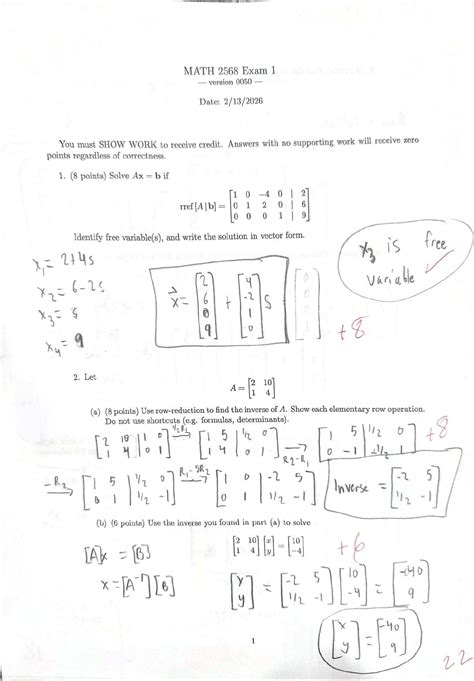 MATH 2568 Exam 1
— version 0050 —
Date: 2/13/2026
You must SHOW WORK to receive credit. Answers with no supporting work will receive zero
points regardless of correctness.
1. (8 points) Solve Ax = b if
rref[A|b] = [1 0 −4 0 | 2
0 1 2 0 | 6
0 0 0 1 | 9]
Identify free variable(s), and write the solution in vector form.
x₃ is free
variable ✓
x₁ = 2+4s
x₂ = 6-2s
x₃ = s
x₄ = 9
x⃗ = [2 6 0 9] + [4 -2 1 0] s
+8
2. Let
A = [2 10
1 4]
(a) (8 points) Use row-reduction to find the inverse of A. Show each elementary row operation.
Do not use shortcuts (e.g. formulas, determinants).
[2 10 | 1 0
1 4 | 0 1] ½R₁ → [1 5 | 1/2 0
1 4 | 0 1] R2-R₁ → [1 5 | 1/2 0
0 -1 | -1/2 1] +8
-R₂ → [1 5 | 1/2 0
0 1 | 1/2 -1] R₁-5R₂ → [1 0 | -2 5
0 1 | 1/2 -1]
Inverse = [-2 5
1/2 -1]
(b) (6 points) Use the inverse you found in part (a) to solve
[2 10
1 4] [x
y] = [10
−4]
+6
[A]x = [B]
x = [A⁻¹][B]
[x
y] = [-2 5
1/2 -1] [10
-4] = [-40
9]
[x
y] = [-40
9]
1
22